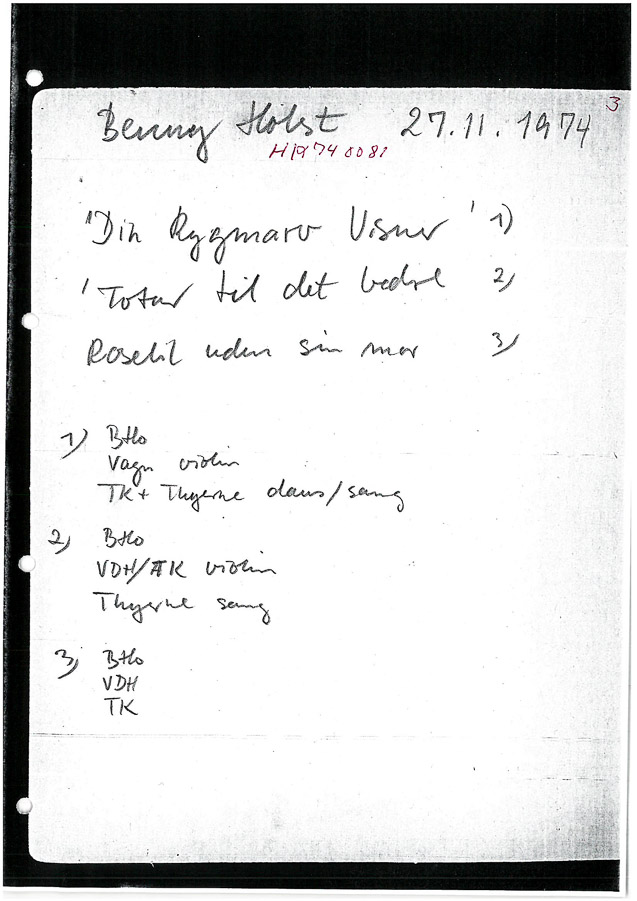 3
Benny Holst 27.11.1974
H19740081
'Din Rygmarv Visner' 1)
'Totur til det bedste 2)
Roselil uden sin mor 3)
1) BHo
Vagn violin
TK + Thyerne dans/sang
2) BHo
VDH/TK violin
Thyerne sang
3) BHo
VDH
TK